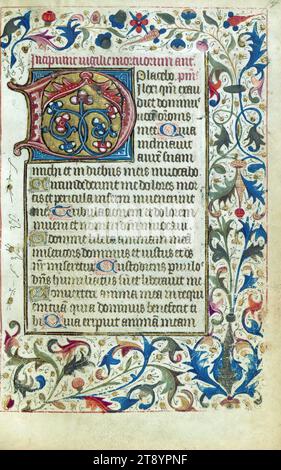 Incipiunt vigilie mortuorum ant.
Placebo. ps.
Dilexi qm exau
diet dominus
vocem orationis
mee Quia
inclinavit
aurem suam
michi et in diebus meis invocabo
Circumdederunt me dolores mor
tis et pericula inferni invenerunt
me Tribulationem et dolorem
inveni et nomen domini invocavi
O domine libera animam meam
misericors dominus et iustus et deus
nr miseretur Custodiens parvulos
dns humiliatus sum et liberavit me
Convertere anima mea in requiem
tuam quia dominus benefecit ti
bi Quia eripuit animam meam
alamy
2T8YPNF